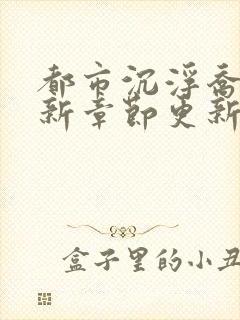 都市沉浮乔
新章节更新
盒子里的小丑